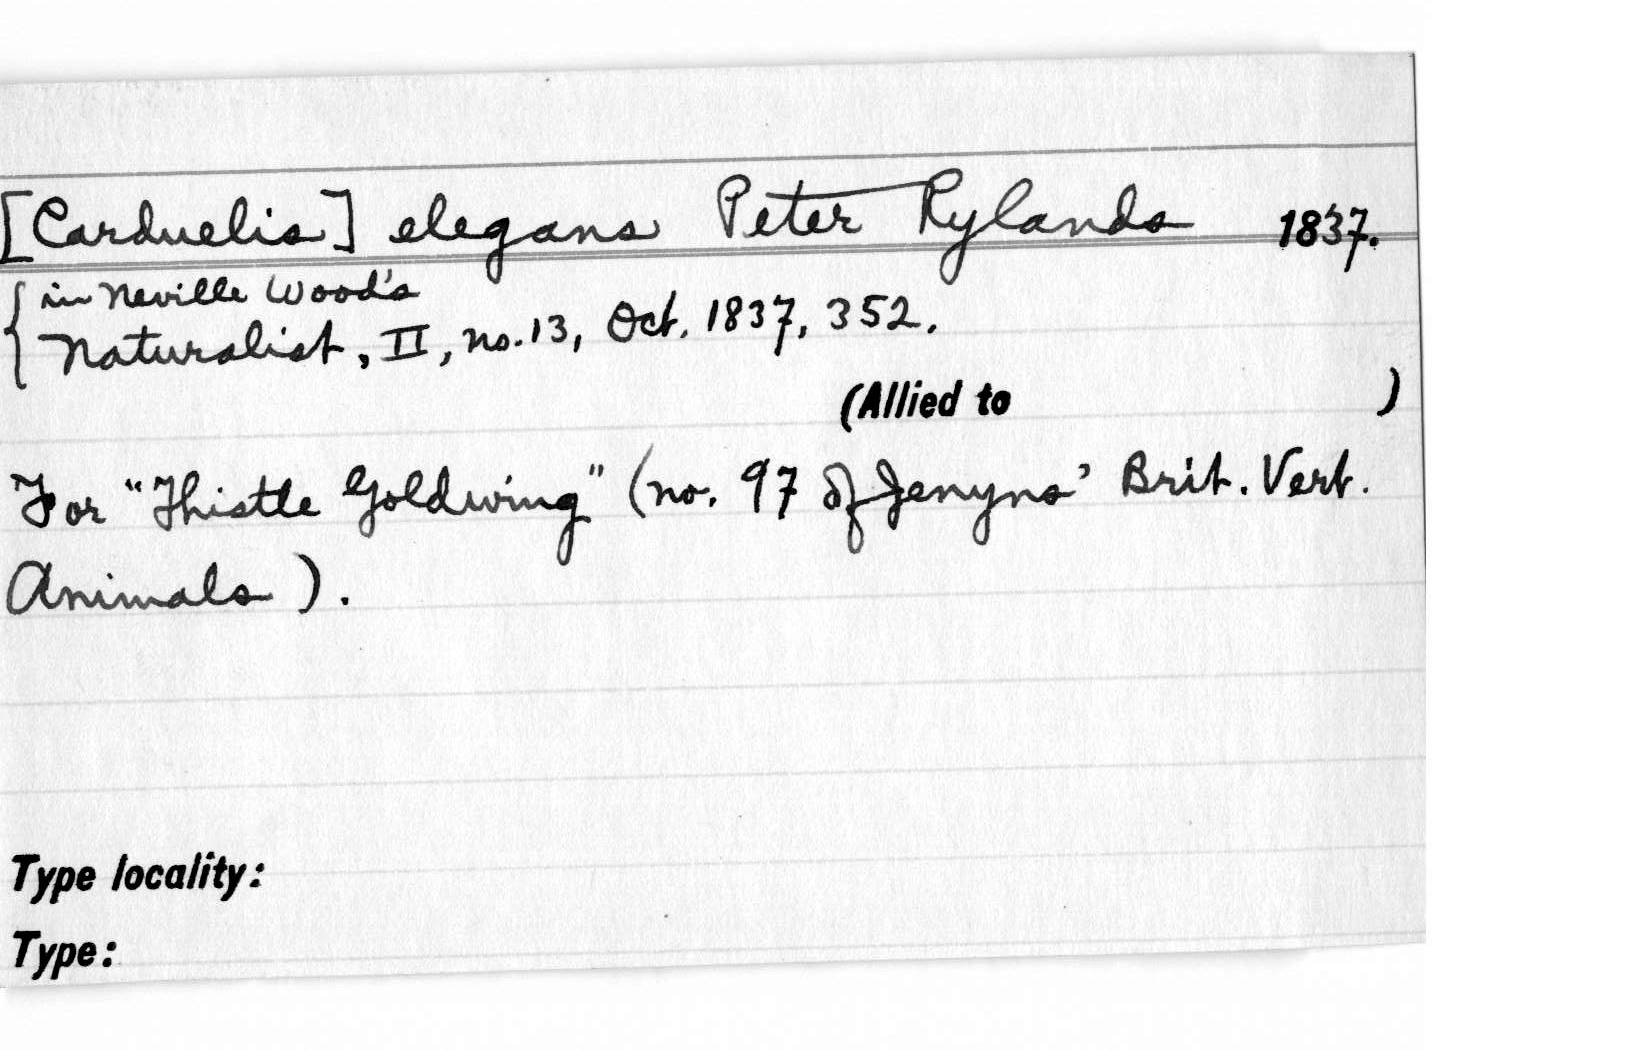 [Carduelis] elegans Peter Rylands 1837.
in Neville Wood's
Naturalist, II, no. 13, Oct. 1837, 352.
(Allied to )
For "Thistle Goldwing" (no. 97 of Jenyns' Brit. Vert.
Animals).
Type locality:
Type: